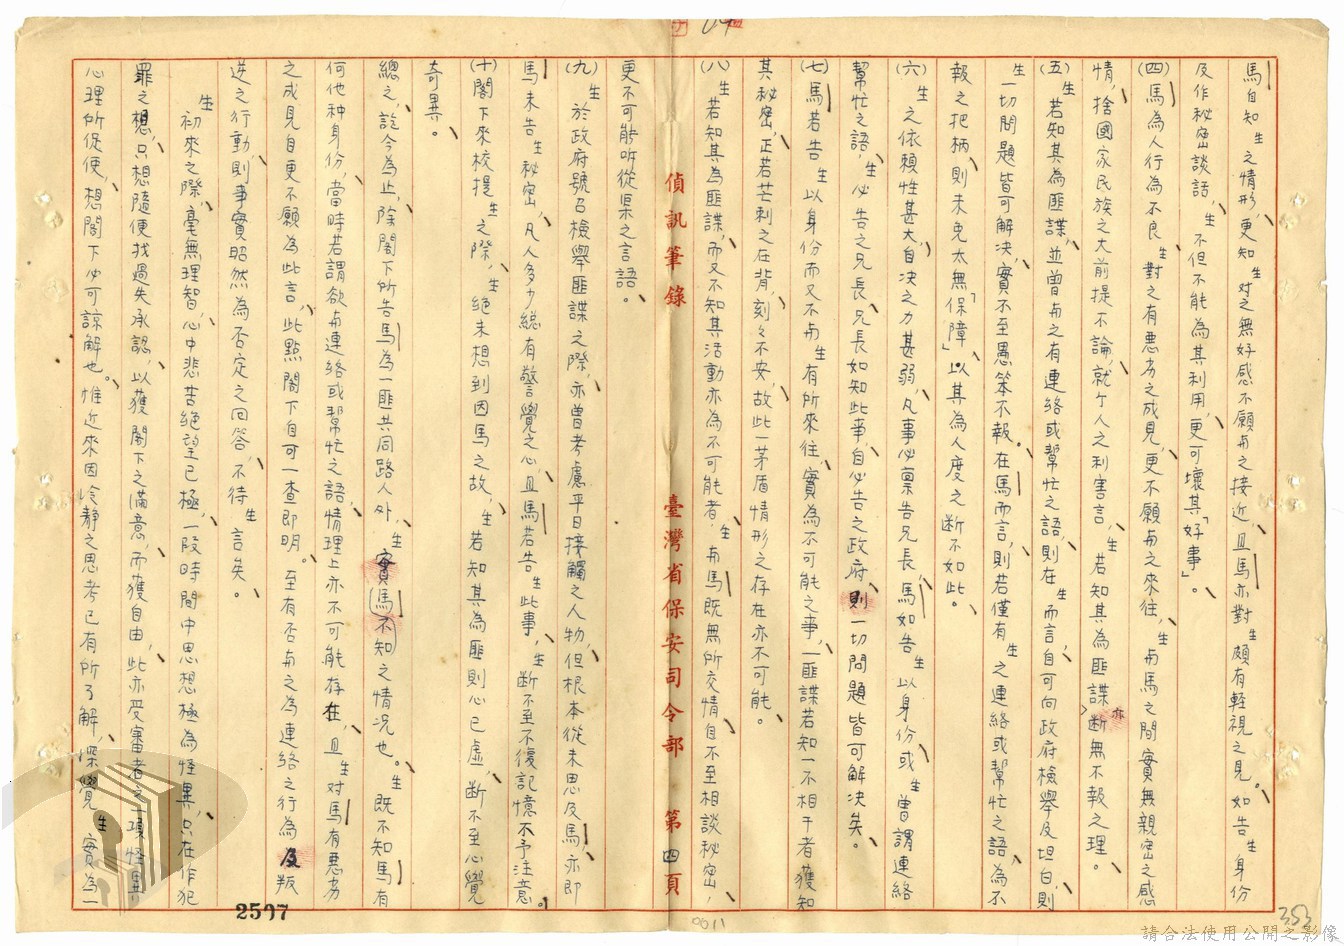 馬自知生之情形，更知生對之無好感不願與之接近，且馬亦對生頗有輕視之見。如告生身份
及作秘密談話，生不但不能為其利用，更可壞其「好事」。
(四)馬為人行為不良，生對之有惡劣之成見，更不願與之來往，生與馬之間實無親密之感
情，捨國家民族之大前提不論，就个人之利害言，生若知其為匪諜亦斷無不報之理。
(五)生若知其為匪諜，並曾與之有連絡或幫忙之語，則在生而言，自可向政府檢舉及坦白，則
生一切問題皆可解決，實不至愚笨不報。在馬而言，則若僅有生之連絡或幫忙之語，為不
報之把柄，則未免太無「保障」，以其為人度之斷不如此。
(六)生之依賴性甚大，自決之力甚弱，凡事必稟告兄長，馬如告生以身份，或生曾謂連絡
幫忙之語，生必告之兄長，兄長如知此事，自必告之政府，則一切問題皆可解決矣。
(七)馬若告生以身份而又不與生有所來往，實為不可能之事，一匪諜若知一不相干者獲知
其秘密，正若芒刺之在背，刻々不安，故此一茅盾情形之存在亦不可能。
(八)生若知其為匪諜，而又不知其活動亦為不可能者，生與馬既無所交情，自不至相談秘密，
更不可能听從渠之言語。
偵訊筆錄 臺灣省保安司令部 第四頁
(九)生於政府號召檢舉匪諜之際，亦曾考慮平日接觸之人物，但根本從未思及馬，亦即
馬未告生秘密，凡人多少總有警覺之心，且馬若告生此事，生斷不至不復記憶不予注意。
(十)閣下來校提生之際，生絕未想到因馬之故，生若知其為匪則心已虛，斷不至心覺
奇異。
總之，訖今為止，除閣下所告馬為一匪共同路人外，生實不知馬之情況也。生既不知馬有
何他种身份，當時若謂欲與連絡或幫忙之語，情理上亦不可能存在，且生對馬有惡劣
之成見自更不願為此言，此點閣下自可一查即明。至有否與之為連絡之行為及叛
逆之行動，則事實昭然為否定之回答，不待生言矣。
生初來之際，毫無理智，心中悲苦絕望已極，一段時間中思想極為怪異，只在作犯
罪之想，只想隨便找過失承認，以獲閣下之滿意，而獲自由，此亦受審者之一項怪異
心理所促使，想閣下必可諒解也。惟近來因冷靜之思考已有所了解，深覺生實為一
2507
0011
353
請合法使用公開之影像